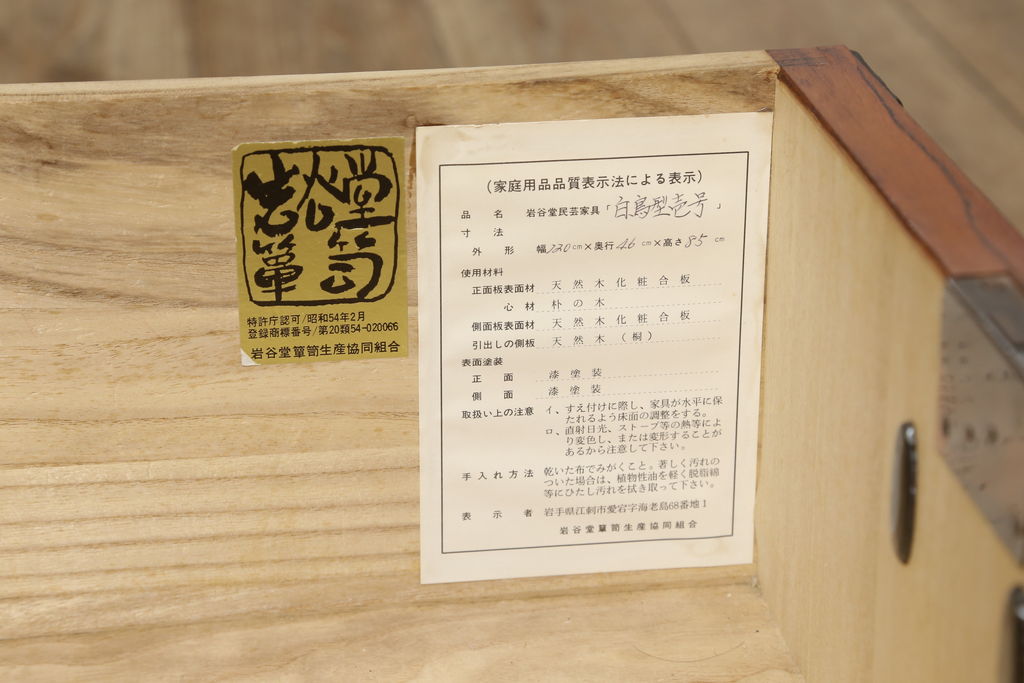 岩谷堂
簞笥
特許庁認可/昭和54年2月
登録商標番号/第20類54-020066
岩谷堂簞笥生産協同組合
(家庭用品品質表示法による表示)
品名 岩谷堂民芸家具「白鳥型壱号」
寸法
外形 幅120cm×奥行46cm×高さ85cm
使用材料
正面板表面材 天然木化粧合板
心材 朴の木
側面板表面材 天然木化粧合板
引出しの側板 天然木(桐)
表面塗装
正面 漆塗装
側面 漆塗装
取扱い上の注意 イ、すえ付けに際し、家具が水平に保
たれるよう床面の調整をする。
ロ、直射日光、ストーブ等の熱等によ
り変色し、または変形することが
あるから注意して下さい。
手入れ方法 乾いた布でみがくこと。著しく汚れの
ついた場合は、植物性油を軽く脱脂綿
等にひたし汚れを拭き取って下さい。
表示者 岩手県江刺市愛宕字海老島68番地1
岩谷堂簞笥生産協同組合